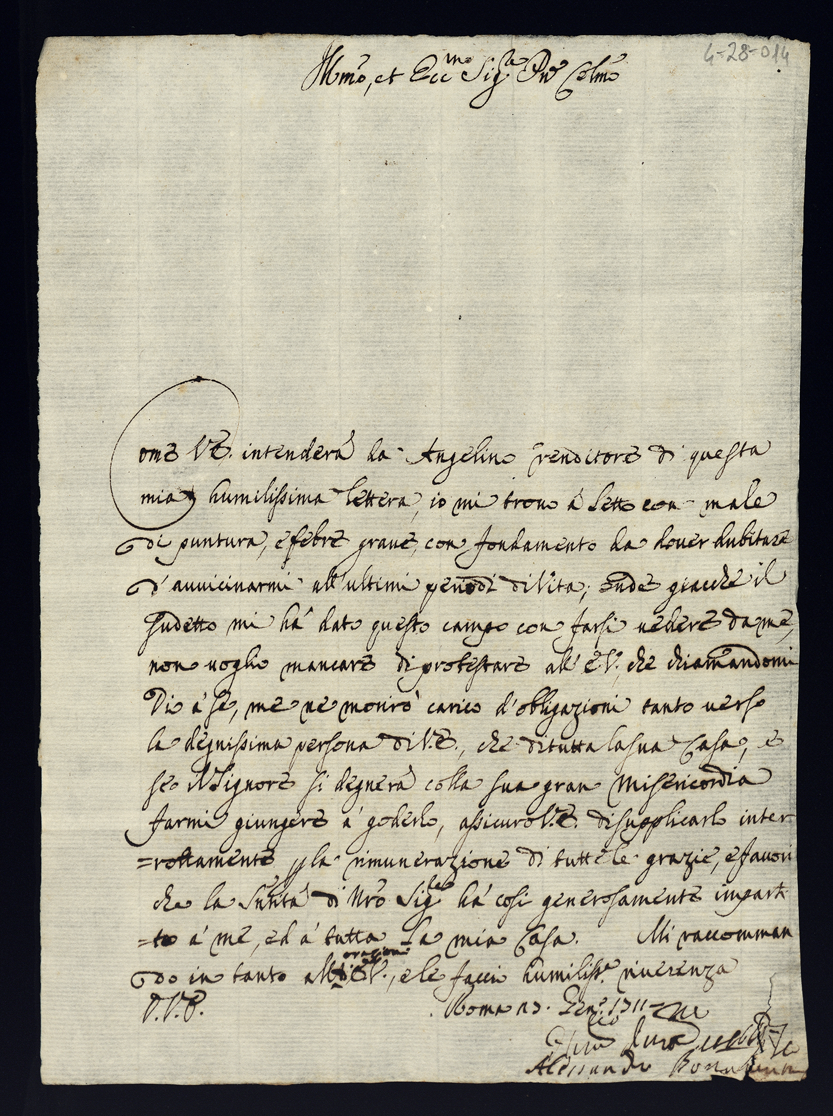 4-28-014
Illmo, et Ecc.mo Sig.re Pne Colmo
Come V.E. intenderà da Angelino renditore di questa
mia humilissima lettera, io mi trovo à letto con male
di puntura, e febre grave, con fondamento da dover dubitare
d'avvicinarmi all'ultimi periodi di Vita; onde giacche il
sudetto mi hà dato questo campo con farsi vedere da me,
non voglio mancare di protestare all'E.V., che chiamandomi
Dio à se, me ne morirò carico d'obligazioni tanto verso
la degnissima persona di V.E., che di tutta la sua Casa, e
se il Signore si degnerà colla sua gran Misericordia
farmi giungere à goderlo, assicuro V.E. di supplicarlo inter
=rottamente p la rimunerazione di tutte le grazie, e favori
che la Santità di Nro Sig.re hà così generosamente imparti
=to à me, ed à tutta la mia Casa. Mi raccoman
do in tanto all' orazioni E.V., e le faccio humiliss.a riverenza
D.V.E. Roma 13. Gen.o 1711
Alessandro